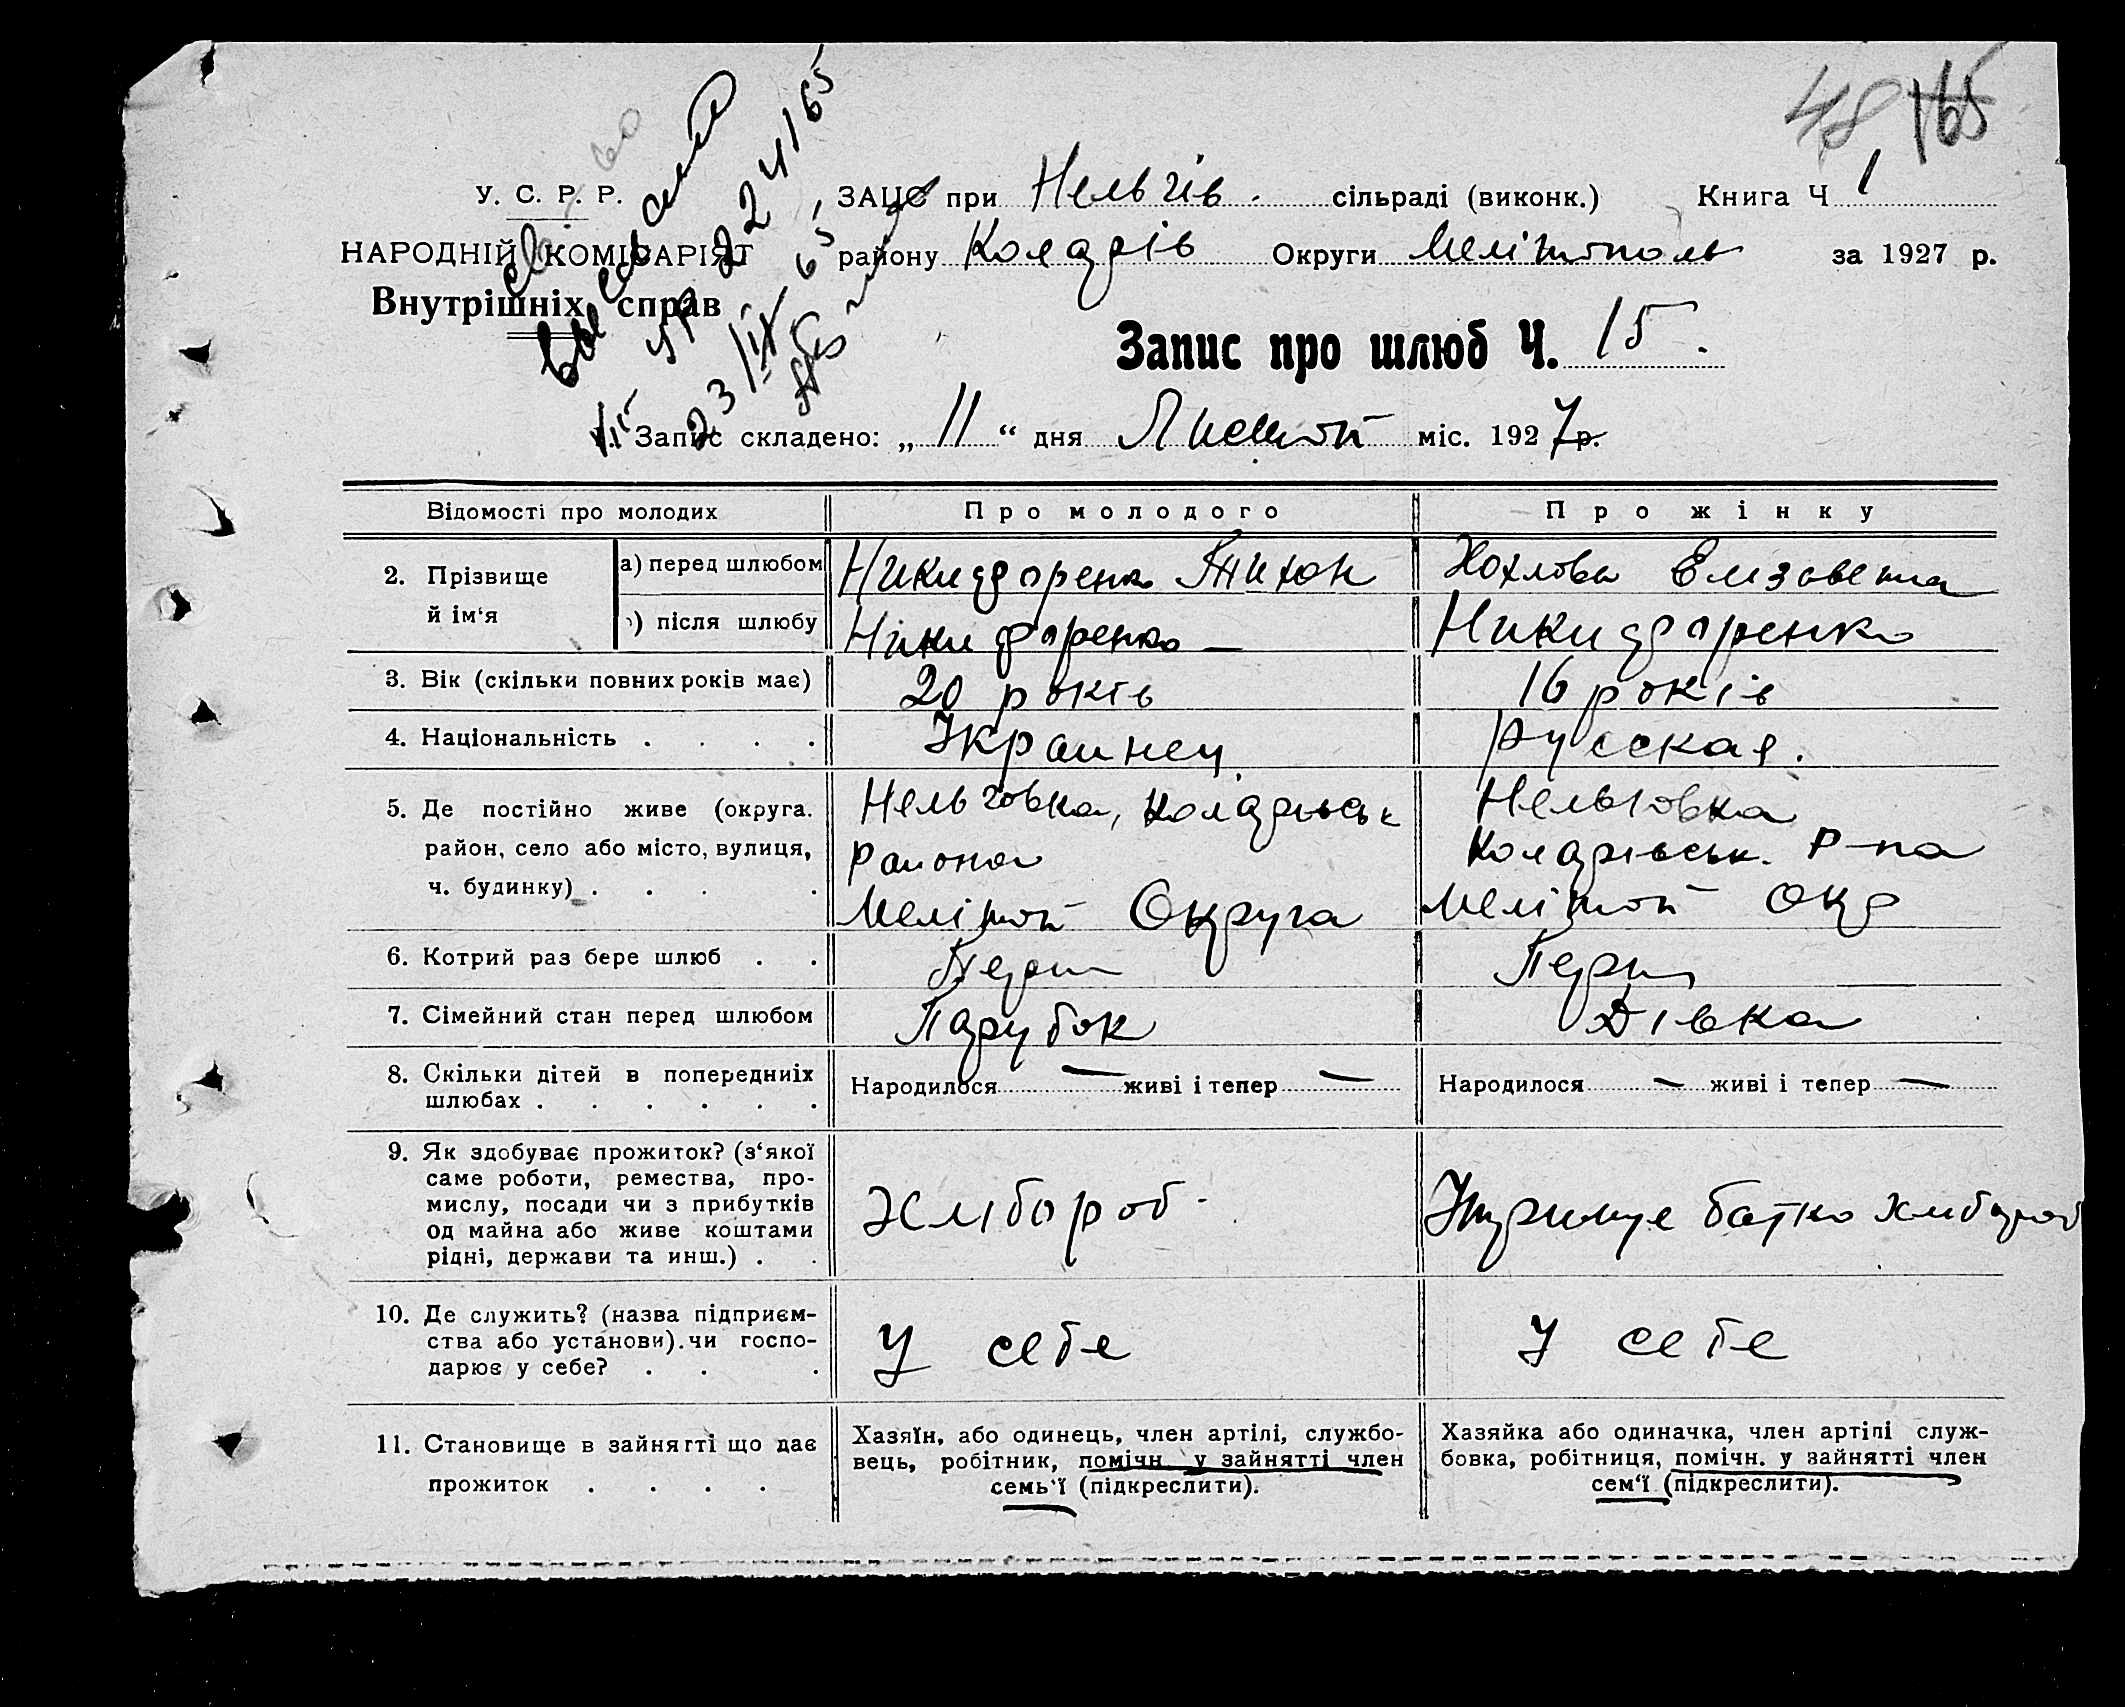 48 165
У. С. Р. Р.
НАРОДНІЙ КОМІСАРІЯТ
Внутрішніх справ
ЗАЦС при Нельгів. сільраді (виконк.) Книга Ч 1
району Колярів Округи Мелітополь за 1927 р.
Запис про шлюб Ч. 15.
Запис складено: „ 11 “ дня міс. 1927 р.
Відомості про молодих Про молодого Про жінку
2. Прізвище й ім‘я
а) перед шлюбом Никифоренко Тихон Хохлова Елизавета
) після шлюбу Никифоренко — Никифоренко
3. Вік (скільки повних років має) 20 років 16 років
4. Національність . . . . Украинец Русская.
5. Де постійно живе (округа. район, село або місто, вулиця, ч. будинку) . . . .
Нельговка,
Района
Меліт Округа
Нельговка
Р-на
Меліт Окр
6. Котрий раз бере шлюб . . Перш Перш
7. Сімейний стан перед шлюбом Парубок Дівка
8. Скільки дітей в попередниіх шлюбах . . . . . . Народилося — живі і тепер — Народилося — живі і тепер —
9. Як здобуває прожиток? (з‘якої
саме роботи, ремества, про-
мислу, посади чи з прибутків
од майна або живе коштами
рідні, держави та инш.) . .
Хлібороб
батко хлибороб
10. Де служить? (назва підприєм-
ства або установи). чи госпо-
дарює у себе? . . .
У себе У себе
11. Становище в зайнятті що дає
прожиток . . . .
Хазяїн, або одинець, член артілі, службо-
вець, робітник, помічн. у зайнятті член
семь‘ї (підкреслити).
Хазяйка або одиначка, член артілі служ-
бовка, робітниця, помічн. у зайнятті член
сем‘ї (підкреслити).